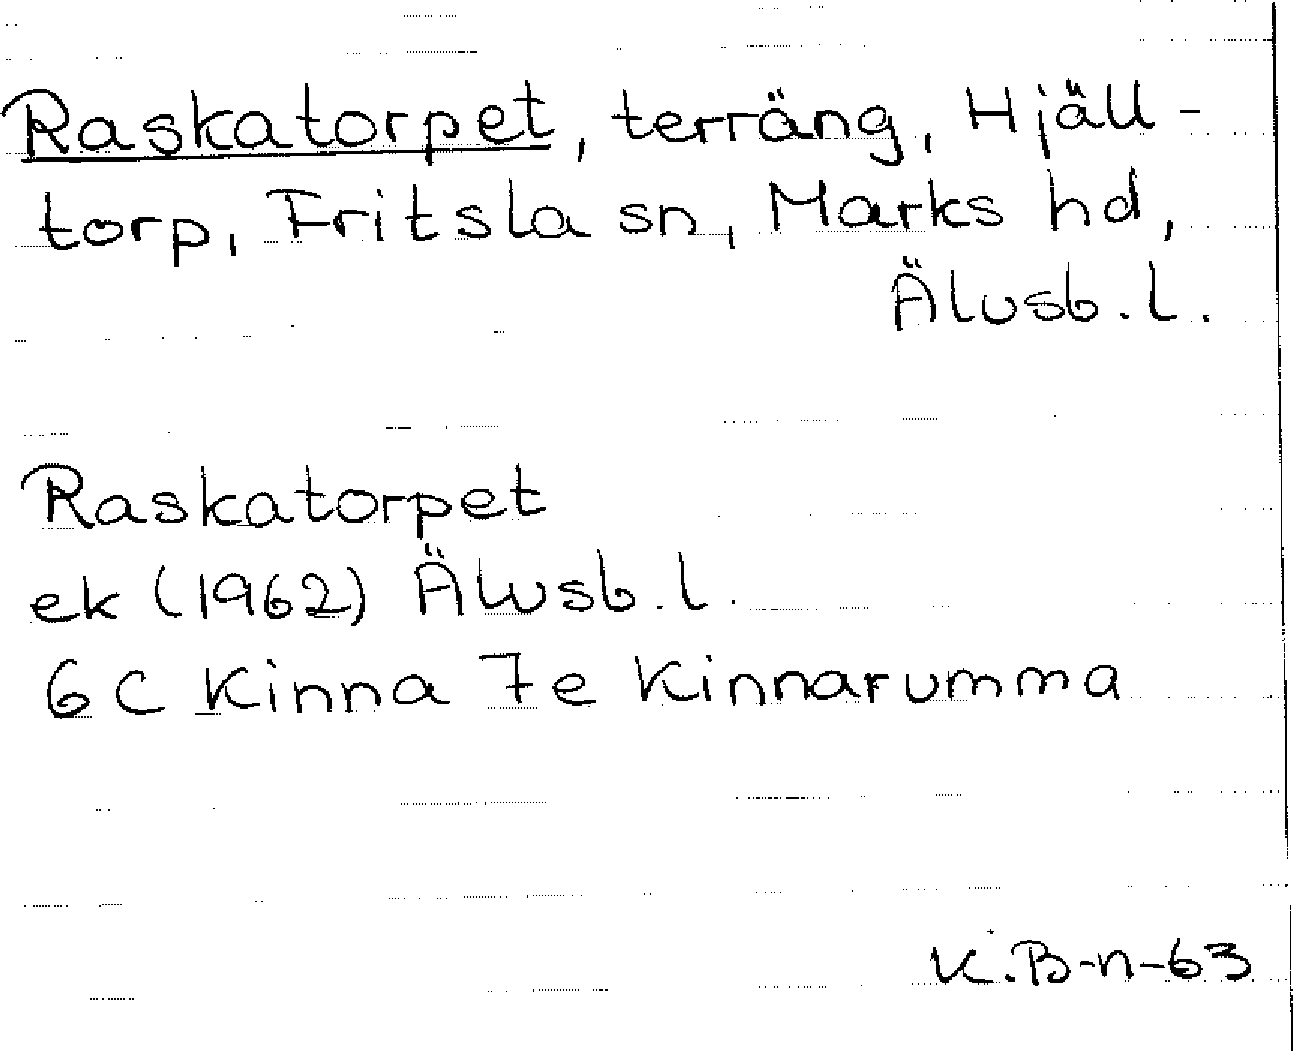 Raskatorpet, terräng, Hjäll-
torp, Fritsla sn, Marks hd,
Älvsb. l.
Raskatorpet
ek (1962) Älvsb. l.
6 C Kinna 7e Kinnarumma
K.B-n-63